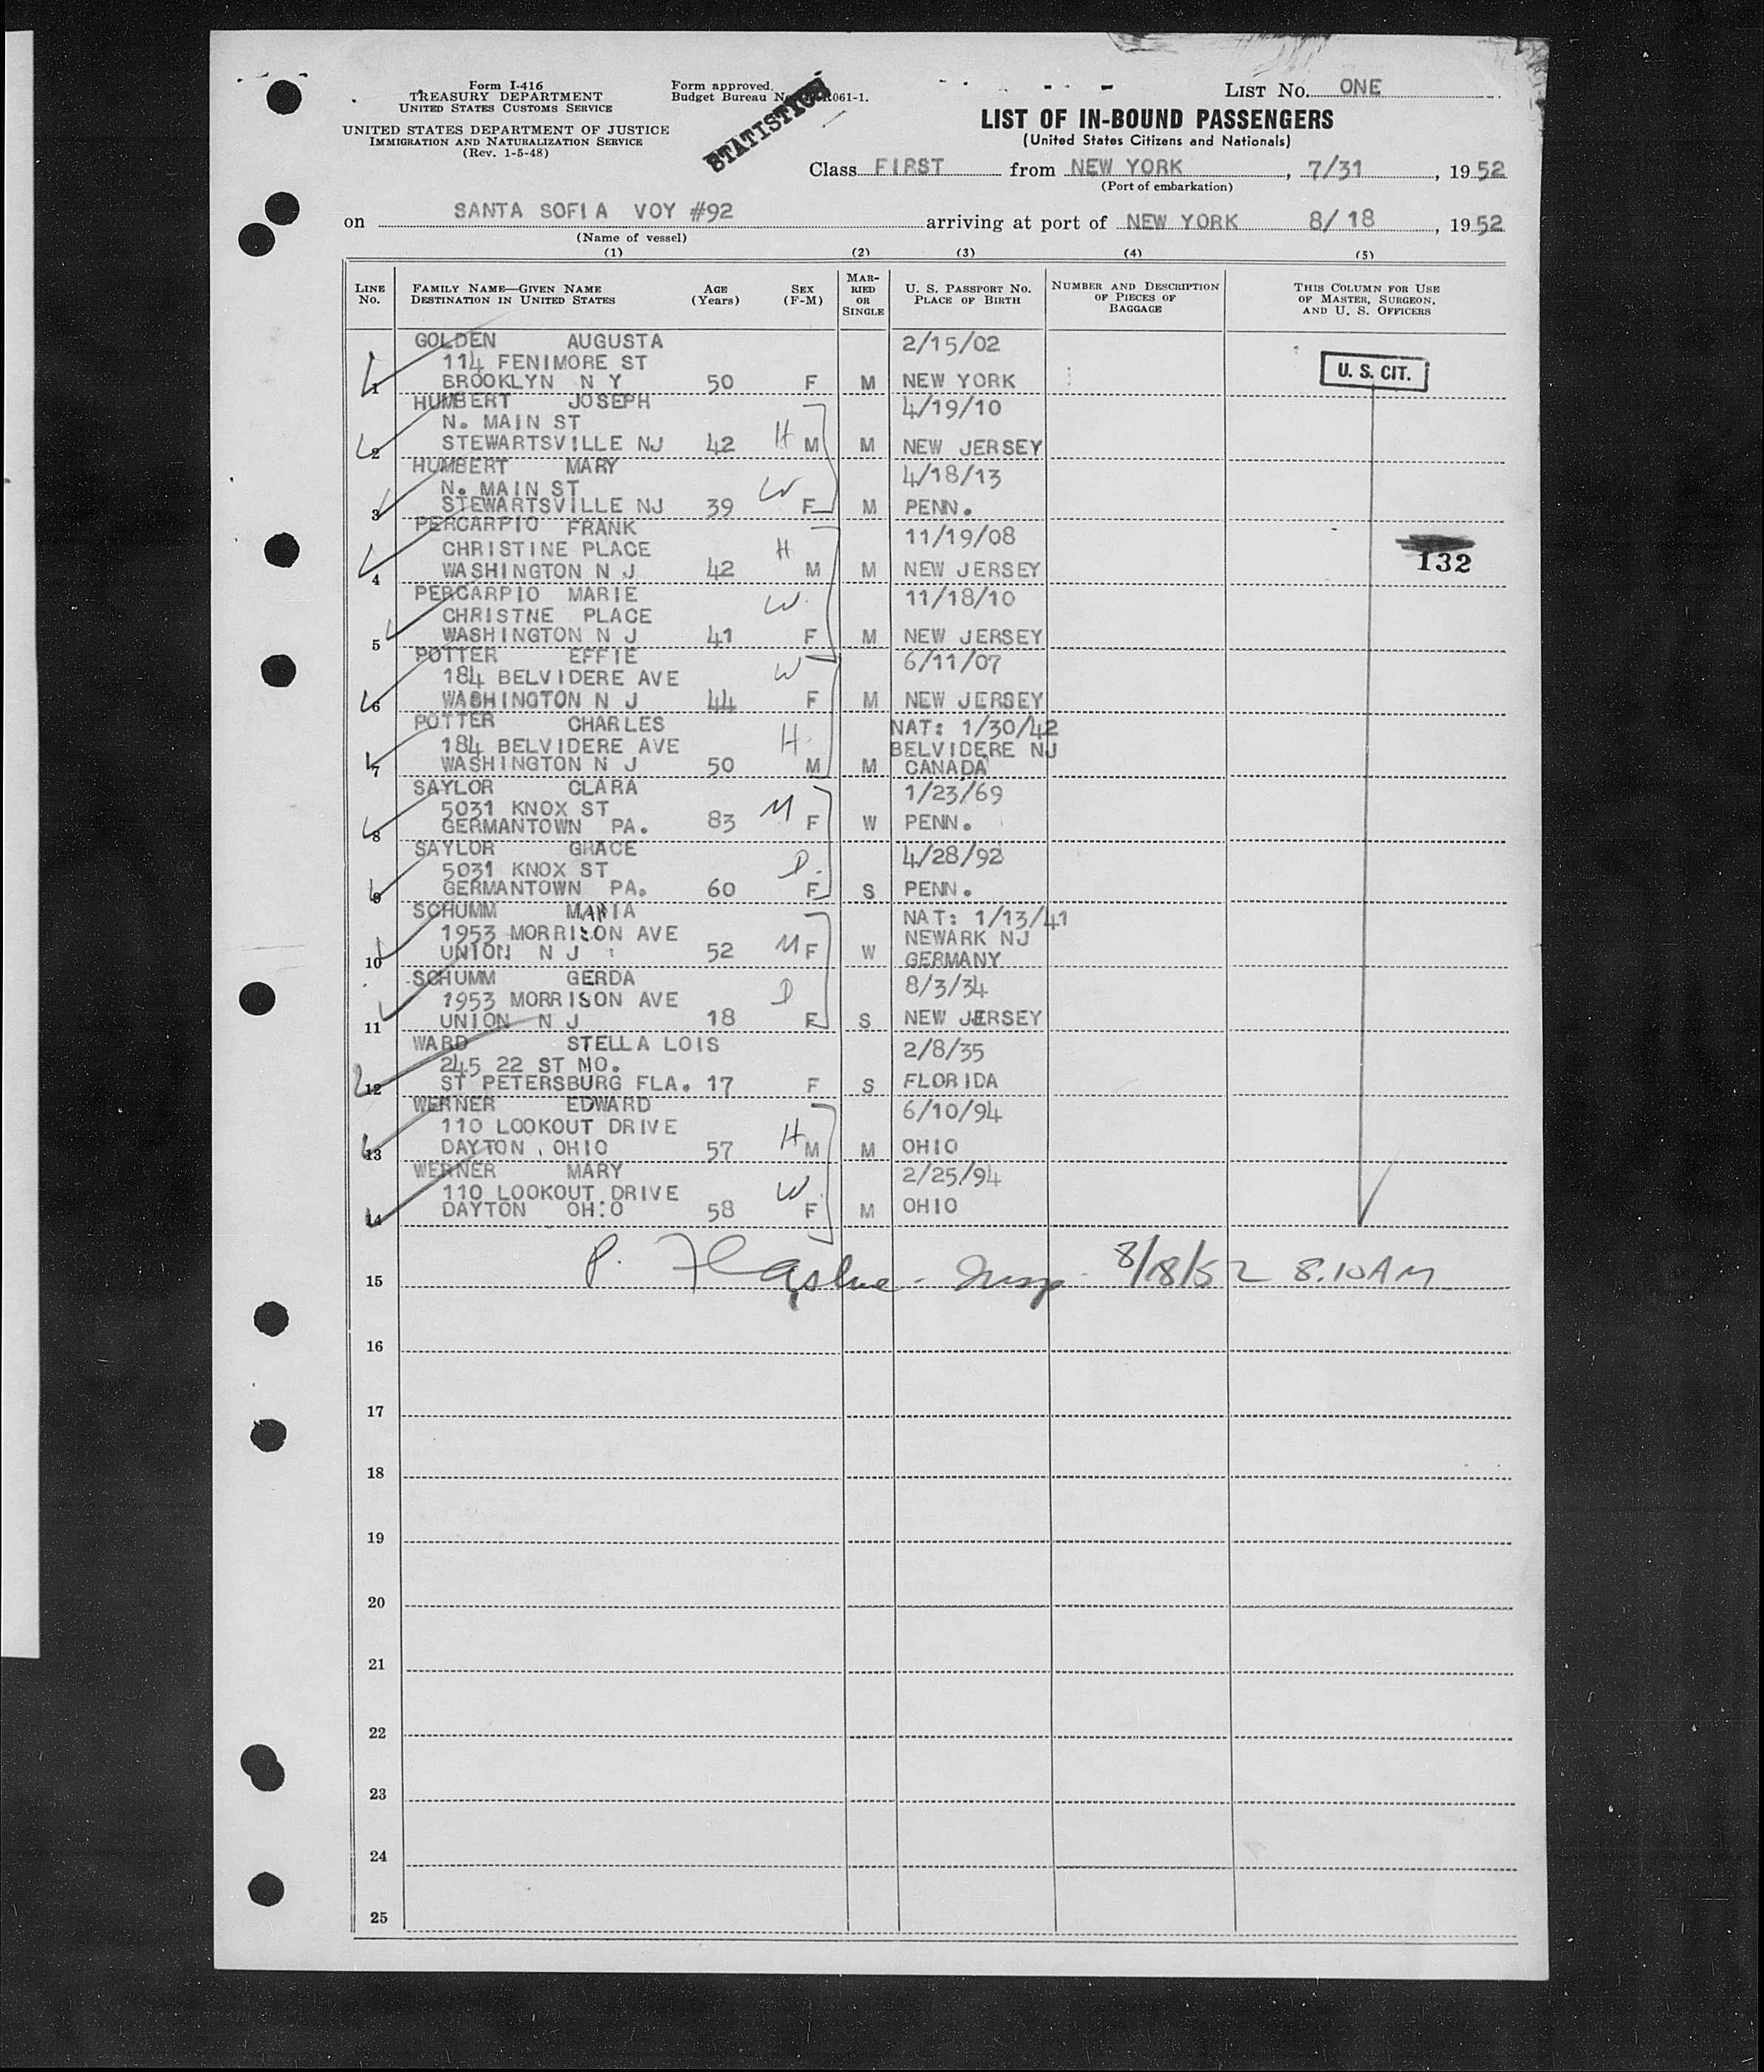 Form I-416
TREASURY DEPARTMENT
UNITED STATES CUSTOMS SERVICE
UNITED STATES DEPARTMENT OF JUSTICE
IMMIGRATION AND NATURALIZATION SERVICE
(Rev. 1-5-48)
Form approved.
Budget Bureau 061-1.
STATISTICS
LIST NO. ONE
LIST OF IN-BOUND PASSENGERS
(United States Citizens and Nationals)
Class FIRST from NEW YORK, 7/31, 1952
(Port of embarkation)
on SANTA SOFIA VOY #92 arriving at port of NEW YORK 8/18, 1952
(Name of vessel)
(1) (2) (3) (4) (5)
LINE NO. FAMILY NAME—GIVEN NAME DESTINATION IN UNITED STATES AGE (Years) SEX (F-M) MARRIED OR SINGLE U. S. PASSPORT NO. PLACE OF BIRTH NUMBER AND DESCRIPTION OF PIECES OF BAGGAGE THIS COLUMN FOR USE OF MASTER, SURGEON, AND U. S. OFFICERS
GOLDEN AUGUSTA 2/15/02
114 FENIMORE ST U. S. CIT.
1 BROOKLYN N Y 50 F M NEW YORK
HUMBERT JOSEPH 4/19/10
N. MAIN ST
2 STEWARTSVILLE NJ 42 H M M NEW JERSEY
HUMBERT MARY 4/18/13
N. MAIN ST W
3 STEWARTSVILLE NJ 39 F M PENN.
PERCARPIO FRANK 11/19/08
CHRISTINE PLACE H 132
4 WASHINGTON N J 42 M M NEW JERSEY
PERCARPIO MARIE 11/18/10
CHRISTNE PLACE W
5 WASHINGTON N J 41 F M NEW JERSEY
POTTER EFFIE 6/11/07
184 BELVIDERE AVE W
6 WASHINGTON N J 44 F M NEW JERSEY
POTTER CHARLES NAT: 1/30/42
184 BELVIDERE AVE H BELVIDERE NJ
7 WASHINGTON N J 50 M M CANADA
SAYLOR CLARA 1/23/69
5031 KNOX ST M
8 GERMANTOWN PA. 83 F W PENN.
SAYLOR GRACE 4/28/92
5031 KNOX ST D.
9 GERMANTOWN PA. 60 F S PENN.
SCHUMM MARIA NAT: 1/13/41
1953 MORRISON AVE NEWARK NJ
10 UNION N J 52 M F W GERMANY
SCHUMM GERDA 8/3/34
1953 MORRISON AVE D
11 UNION N J 18 F S NEW JERSEY
WARD STELLA LOIS 2/8/35
245 22 ST NO.
12 ST PETERSBURG FLA. 17 F S FLORIDA
WERNER EDWARD 6/10/94
110 LOOKOUT DRIVE
13 DAYTON, OHIO 57 H M M OHIO
WERNER MARY 2/25/94
110 LOOKOUT DRIVE W
14 DAYTON OHIO 58 F M OHIO
15 P. Insp. 8/18/52 8.10AM
16
17
18
19
20
21
22
23
24
25